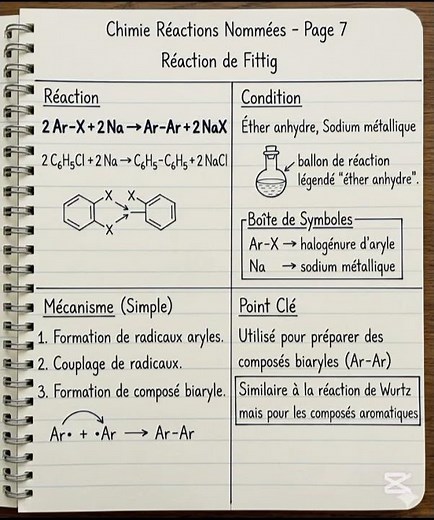 Chimie Réactions Nommées - Page 7
Réaction de Fittig
Réaction
2 Ar-X + 2 Na → Ar-Ar + 2 NaX
2 C₆H₅Cl + 2 Na → C₆H₅-C₆H₅ + 2 NaCl
X X
X
Condition
Éther anhydre, Sodium métallique
ballon de réaction
légendé "éther anhydre".
Boîte de Symboles
Ar-X → halogénure d'aryle
Na → sodium métallique
Mécanisme (Simple)
1. Formation de radicaux aryles.
2. Couplage de radicaux.
3. Formation de composé biaryle.
Ar• + •Ar ⟶ Ar-Ar
Point Clé
Utilisé pour préparer des
composés biaryles (Ar-Ar)
Similaire à la réaction de Wurtz
mais pour les composés aromatiques